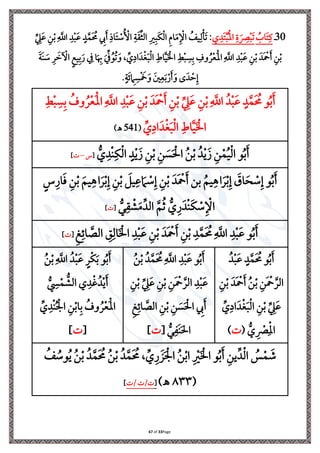 30. كِتَابُ تَبْصِرَةِ الْمُبْتَدِي: تَأْلِيفُ الْإِمَامِ الْكَبِيرِ الثِّقَةِ الْأُسْتَاذِ أَبِي مُحَمَّدٍ عَبْدِ اللَّهِ بْنِ عَلِيِّ
بْنِ أَحْمَدَ بْنِ عَبْدِ اللَّهِ الْمَعْرُوفِ بِسِبْطِ الْخَيَّاطِ الْبَغْدَادِيِّ، وَتُوُفِّيَ بِهَا فِي رَبِيعِ الْآخَرِ سَنَةَ
إِحْدَى وَأَرْبَعِينَ وَخَمْسِمِائَةٍ.
أَبُو مُحَمَّدٍ عَبْدُ اللَّهِ بْنِ عَلِيِّ بْنِ أَحْمَدَ بْنِ عَبْدِ اللَّهِ الْمَعْرُوفُ بِسِبْطِ
الْخَيَّاطِ الْبَغْدَادِيِّ (541 ھ)
أَبُو الْيُمْنِ زَيْدُ بْنُ الْحَسَنِ بْنِ زَيْدٍ الْكِنْدِيُّ [س – ت]
أَبُو إِسْحَاقَ إِبْرَاهِيمُ بن أَحْمَدَ بْنِ إِسْمَاعِيلَ بْنِ إِبْرَاهِيمَ بْنِ فَارِسٍ
الْإِسْكَنْدَرِيُّ ثُمَّ الدِّمَشْقِيُّ [ت]
أَبُو عَبْدِ اللَّهِ مُحَمَّدِ بْنِ أَحْمَدَ بْنِ عَبْدِ الْخَالِقِ الصَّائِغِ [ت]
أَبُو مُحَمَّدٍ عَبْدُ
الرَّحْمَنِ بْنُ أَحْمَدَ بْنِ
عَلِيِّ بْنِ الْبَغْدَادِيِّ
الْمِصْرِيُّ (ت)
أَبُو عَبْدِ اللَّهِ مُحَمَّدُ بْنُ
عَبْدِ الرَّحْمَنِ بْنِ عَلِيِّ بْنِ
أَبِي الْحَسَنِ بْنِ الصَّائِغِ
الْحَنَفِيُّ [ت]
أَبُو بَكْرٍ عَبْدُ اللَّهِ بْنُ
أَيْدُغْدِي الشَّمْسِيُّ
الْمَعْرُوفُ بِابْنِ الْجُنْدِيِّ
[ت]
شَمْسُ الدِّينِ أَبُو الْخَيْرِ ابْنُ الْجَزَرِيِّ، مُحَمَّدُ بْنُ مُحَمَّدُ بْنُ يُوسُفُ
(٨٣٣ ھ) [ت/ت/ت]
67 of 33Page